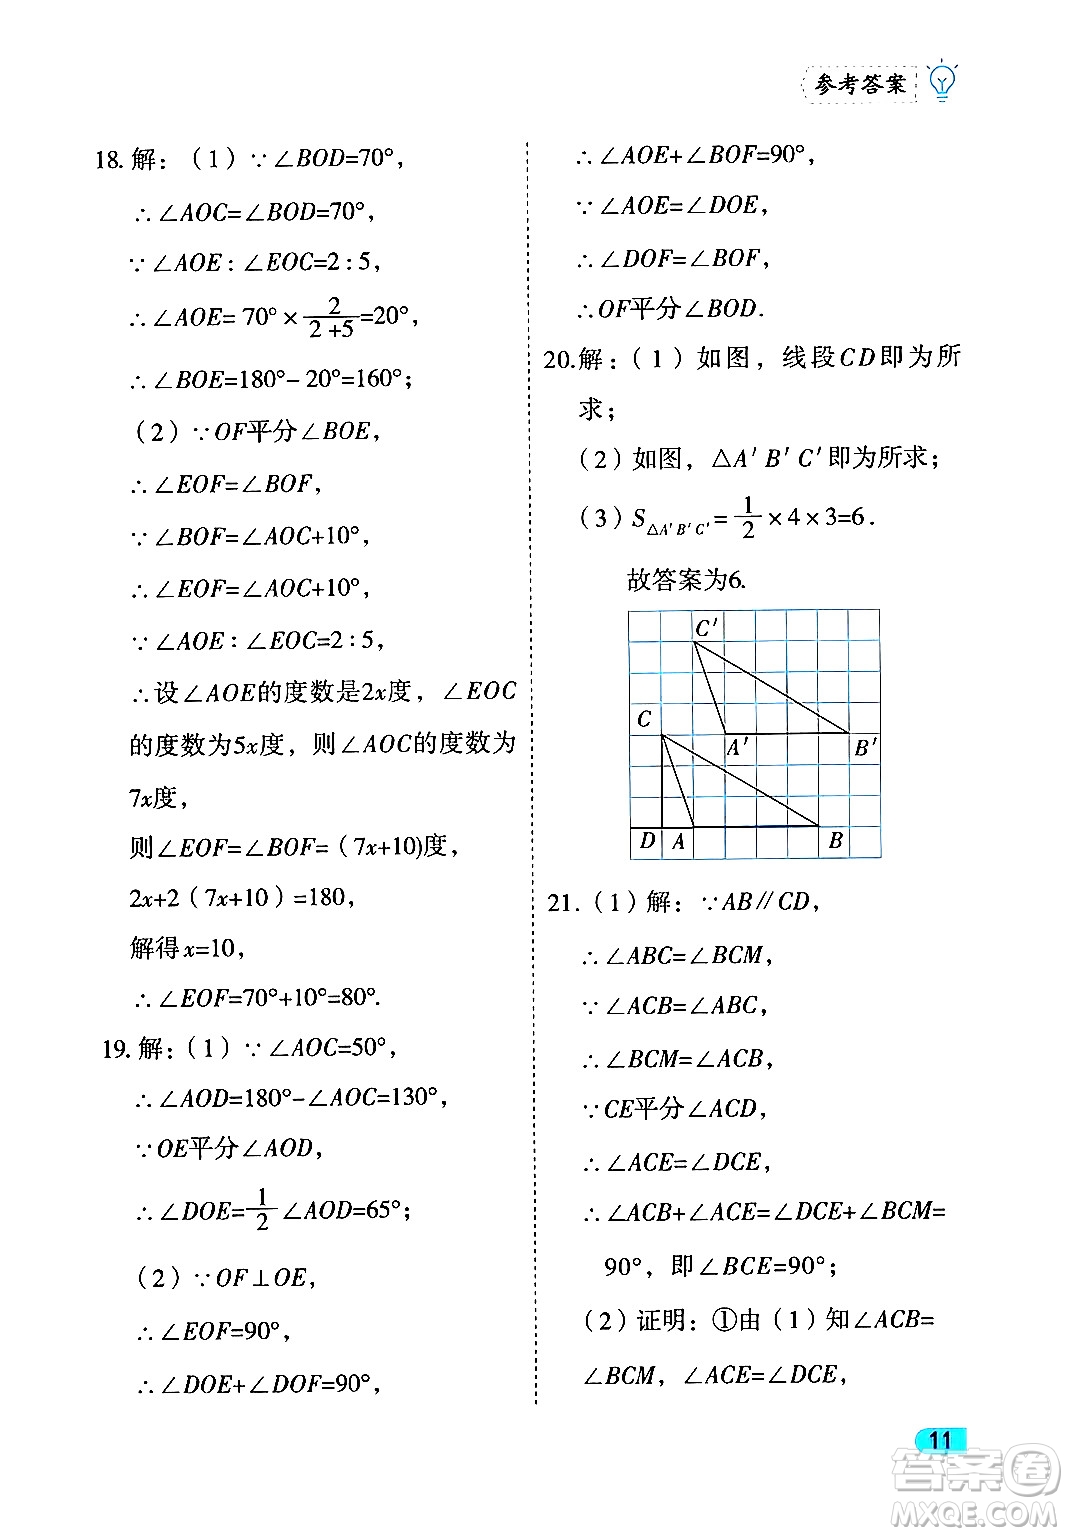 参考答案
18. 解：（1）∵∠BOD=70°，
∴∠AOC=∠BOD=70°，
∵∠AOE：∠EOC=2：5，
∴∠AOE= 70°×2/(2+5)=20°，
∴∠BOE=180°-20°=160°；
（2）∵OF平分∠BOE，
∴∠EOF=∠BOF，
∵∠BOF=∠AOC+10°，
∴∠EOF=∠AOC+10°，
∵∠AOE：∠EOC=2：5，
∴设∠AOE的度数是2x度，∠EOC
的度数为5x度，则∠AOC的度数为
7x度，
则∠EOF=∠BOF=（7x+10)度，
2x+2（7x+10）=180，
解得x=10，
∴∠EOF=70°+10°=80°.
19. 解：（1）∵∠AOC=50°，
∴∠AOD=180°-∠AOC=130°，
∵OE平分∠AOD，
∴∠DOE=1/2∠AOD=65°；
（2）∵OF⊥OE，
∴∠EOF=90°，
∴∠DOE+∠DOF=90°，
∴∠AOE+∠BOF=90°，
∵∠AOE=∠DOE，
∴∠DOF=∠BOF，
∴OF平分∠BOD.
20.解：（1）如图，线段CD即为所
求；
（2）如图，△A′B′C′即为所求；
（3）S△A′B′C′=1/2×4×3=6.
故答案为6.
C′
C
A′ B′
D A B
21.（1）解：∵AB∥CD，
∴∠ABC=∠BCM，
∵∠ACB=∠ABC，
∴∠BCM=∠ACB，
∵CE平分∠ACD，
∴∠ACE=∠DCE，
∴∠ACB+∠ACE=∠DCE+∠BCM=
90°，即∠BCE=90°；
（2）证明：①由（1）知∠ACB=
∠BCM，∠ACE=∠DCE，
11
答案圈
MXQE.COM